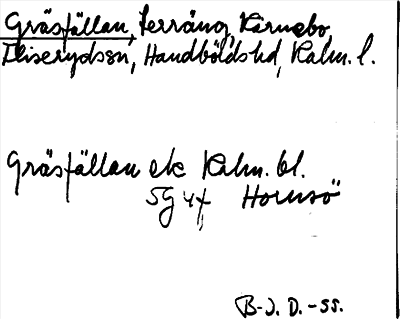 Gräsfällan, terräng, Kärnebo,
Fliserydssn, Handböldshd, Kalm. l.
Gräsfällan ek Kalm. bl.
5G 4f Hornsö
B-J. D. -55.